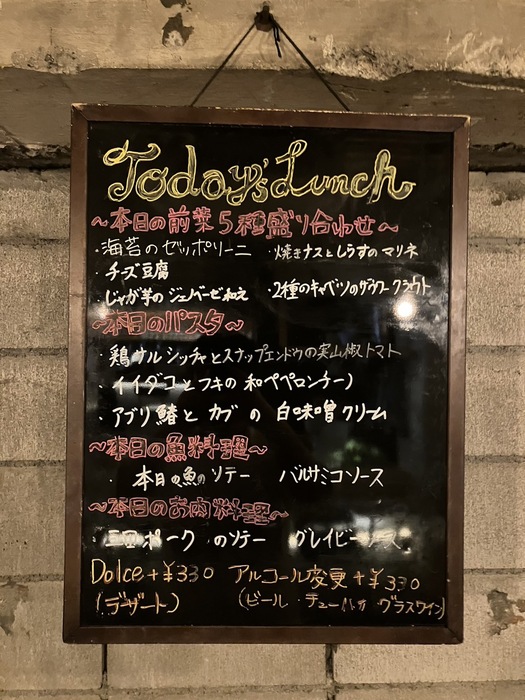 Today's Lunch
～本日の前菜5種盛り合わせ～
・海苔のゼッポリーニ ・焼きナスとしらすのマリネ
・チーズ豆腐
・じゃが芋のジェノベーゼ和え ・2種のキャベツのザワークラウト
～本日のパスタ～
・鶏サルシッチャとスナップエンドウの実山椒トマト
・イイダコとフキの和ペペロンチーノ
・アブリ鰆とカブの白味噌クリーム
～本日の魚料理～
・本日の魚のソテー バルサミコソース
～本日のお肉料理～
ポークのソテー グレイビーソース
Dolce+¥330 アルコール変更+¥330
(デザート) (ビール・チューハイ グラスワイン)